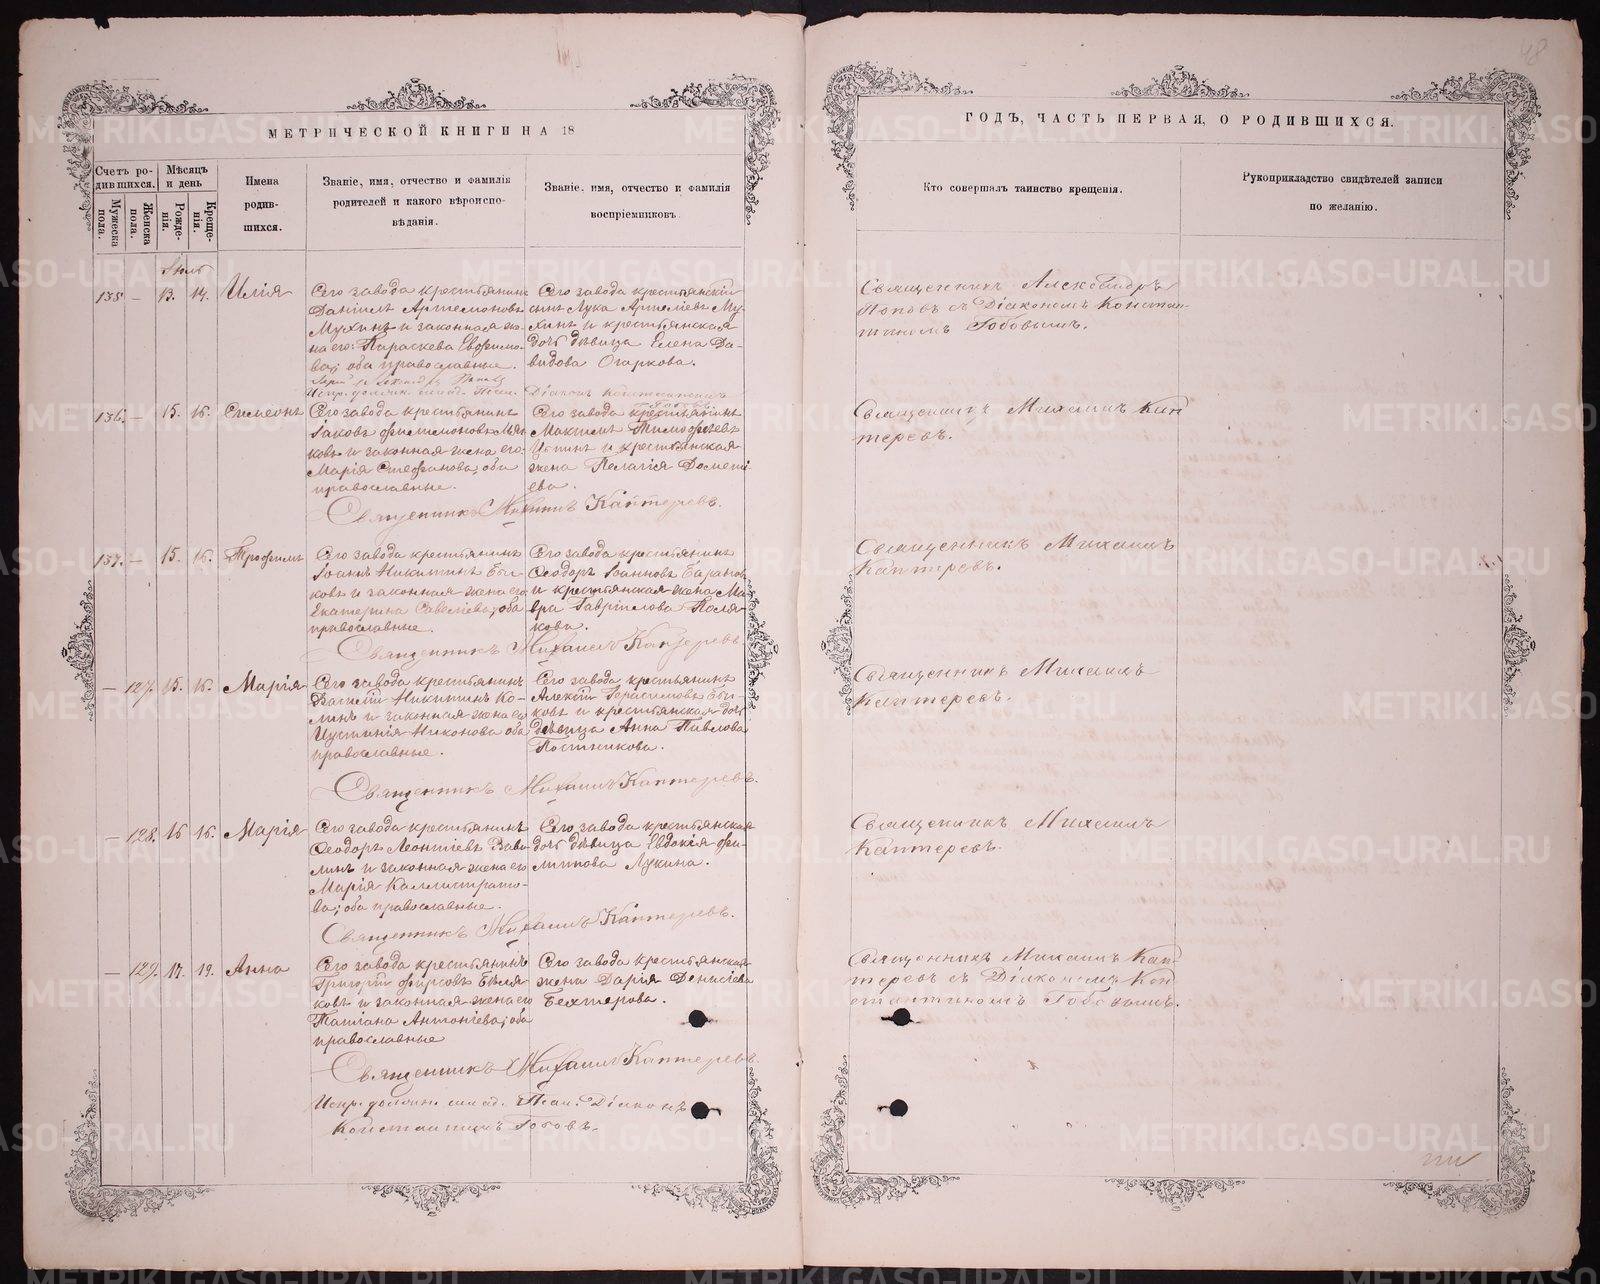 48
МЕТРИЧЕСКОЙ КНИГИ НА 18
ГОДЪ, ЧАСТЬ ПЕРВАЯ, О РОДИВШИХСЯ.
Счетъ ро-
дившихся.
Мѣсяцъ
и день
Мужеска
пола.
Женска
пола.
Рожде-
нія.
Креще-
нія.
Имена
родив-
шихся.
Званіе, имя, отчество и фамилія
родителей и какого вѣроиспо-
вѣданія.
Званіе, имя, отчество и фамилія
воспріемниковъ.
Кто совершалъ таинство крещенія.
Рукоприкладство свидѣтелей записи
по желанію.
Іюль
135 — 13. 14. Илія
Сего завода крестьянинъ
Даніилъ Артемоновъ
Мухинъ и законная же-
на его Параскева Евфимо-
ва; оба православные.
Сего завода крестьянскій
сынъ Лука Артемьевъ Му-
хинъ и крестьянская
дочь дѣвица Елена Да-
видова Огаркова.
Священникъ Александръ
Поповъ съ Діакономъ Констан-
тиномъ Гобовымъ.
136. — 15. 16. Симеонъ
Сего завода крестьянинъ
Іаковъ Филимоновъ
и законная жена его
Марія Стефанова; оба
православные.
Сего завода крестьянинъ
Максимъ Тимофеевъ
и крестьянская
жена Пелагія Домети-
ева.
Священникъ Михаилъ Каптеревъ.
Священникъ Михаилъ Кап
теревъ.
137. — 15. 16. Трофимъ
Сего завода крестьянинъ
Іоаннъ Никитинъ Бы-
ковъ и законная жена его
Екатерина Савеліева; оба
православные.
Сего завода крестьянинъ
Феодоръ Іоанновъ Барановъ
и крестьянская жена Ма-
вра Гавріилова Поля-
кова.
Священникъ Михаилъ Каптеревъ
Священникъ Михаилъ
Каптеревъ.
— 127. 15. 16. Марія
Сего завода крестьянинъ
Василій Никитинъ Ко-
минъ и законная жена его
Иустинія Никонова оба
православные.
Сего завода крестьянинъ
Алексій Герасимовъ Бы-
ковъ и крестьянская дочь
дѣвица Анна Павлова
Постникова.
Священникъ Михаилъ Каптеревъ.
Священникъ Михаилъ
Каптеревъ.
— 128. 16 16. Марія
Сего завода крестьянинъ
Феодоръ Леонтіевъ Вави-
линъ и законная жена его
Марія Каллистрато-
ва; оба православные.
Сего завода крестьянская
дочь дѣвица Евдокія Фи-
липова Лукина.
Священникъ Михаилъ Каптеревъ.
Священникъ Михаилъ
Каптеревъ.
— 129. 17. 19. Анна
Сего завода крестьянинъ
Григорій Фирсовъ Бѣля-
ковъ и законная жена его
Татіана Антоніева; оба
православные
Сего завода крестьянская
жена Дарія Денисіева
Бехтерова.
Священникъ Михаилъ Каптеревъ.
Испр. должн. Псал. Діаконъ
Константинъ Гобовъ.
Священникъ Михаилъ Кап-
теревъ съ Діакономъ Кон
стантиномъ Гобовымъ.
METRIKI.GASO-URAL.RU